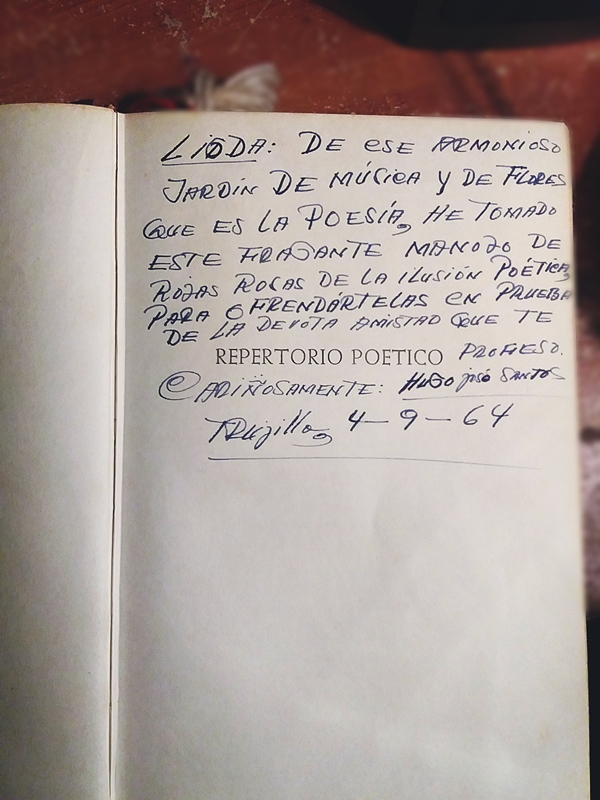 LIGDA: DE ESE ARMONIOSO
JARDÍN DE MÚSICA Y DE FLORES
QUE ES LA POESÍA, HE TOMADO
ESTE FRAGANTE MANOJO DE
ROJAS ROSAS DE LA ILUSIÓN POÉTICA,
PARA OFRENDÁRTELAS EN PRUEBA
DE LA DEVOTA AMISTAD QUE TE
REPERTORIO POETICO PROFESO.
CARIÑOSAMENTE: HUGO JOSÉ SANTOS
TRUjillo, 4-9-64